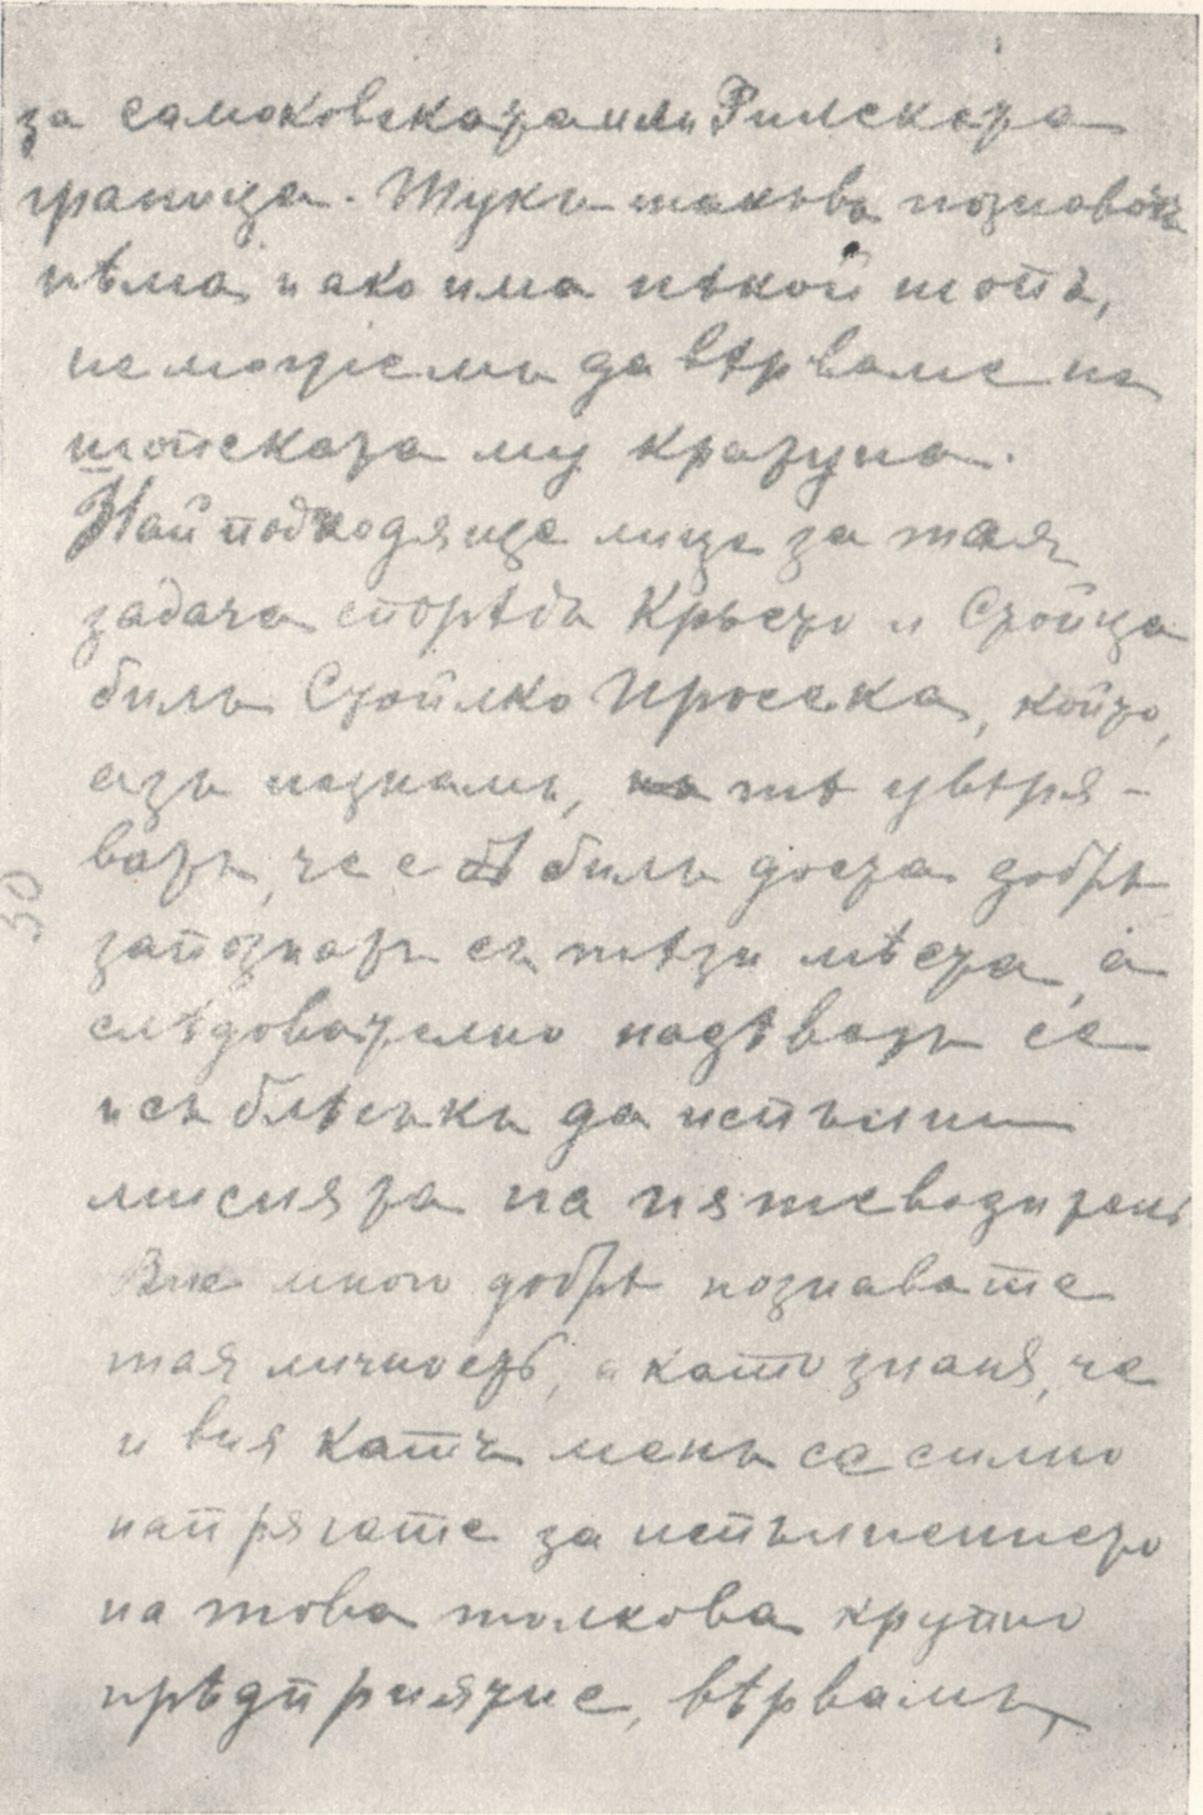 за самоковската или Рилската
граница. Тукъ такъвъ познавачъ
нѣма и ако има нѣкой шопъ,
не можiемъ да вѣрваме на
шопската му кратуна.
Най подходяще лице за тая
задача спорѣдъ Кръсто и Стойца
билъ Стойлко Просека, който,
азъ познамъ, но тѣ увѣря-
ватъ, че е билъ доста добрѣ
запознатъ съ тѣзи мѣста, а
слѣдователно надѣватъ се
и съ блѣсъкъ да испълни
мисията на пятеводителъ
Вие много добрѣ познавате
тая личностъ, а като зная, че
и вия катъ менъ се силно
напрягате за испълнението
на това толкова крупно
прѣдприятие, вѣрвамъ,
30